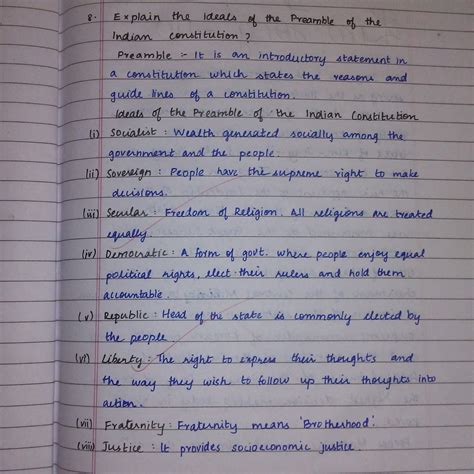 8. Explain the Ideals of the Preamble of the
Indian constitution?
Preamble :- It is an introductory statement in
a constitution which states the reasons and
guide lines of a constitution.
Ideals of the Preamble of the Indian Constitution
(i) Socialist : Wealth generated socially among the
government and the people.
(ii) Sovereign : People have the supreme right to make
decisions.
(iii) Secular : Freedom of Religion. All religions are treated
equally.
(iv) Democratic : A form of govt. where people enjoy equal
political rights, elect their rulers and hold them
accountable.
(v) Republic : Head of the state is commonly elected by
the people.
(vi) Liberty : The right to express their thoughts and
the way they wish to follow up their thoughts into
action.
(vii) Fraternity : Fraternity means 'Brotherhood'.
(viii) Justice : It provides socioeconomic justice.